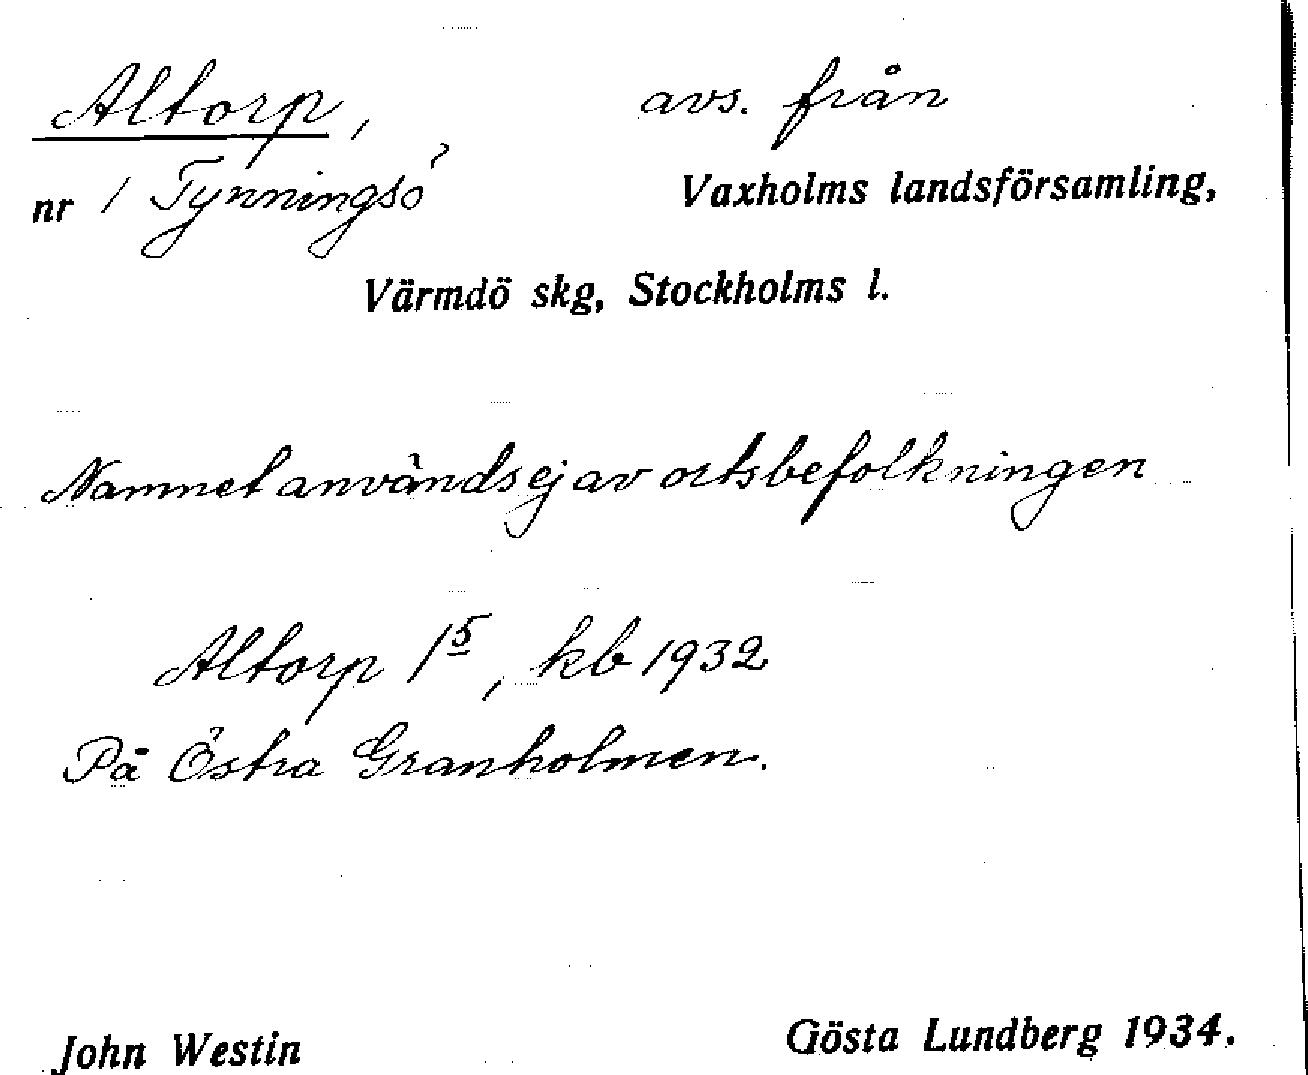 Altorp, avs. från
nr 1 Tynningsö Vaxholms landsförsamling,
Värmdö skg, Stockholms l.
Namnet används ej av ortsbefolkningen
Altorp 1⁵, kb 1932
På Östra Granholmen.
John Westin Gösta Lundberg 1934.